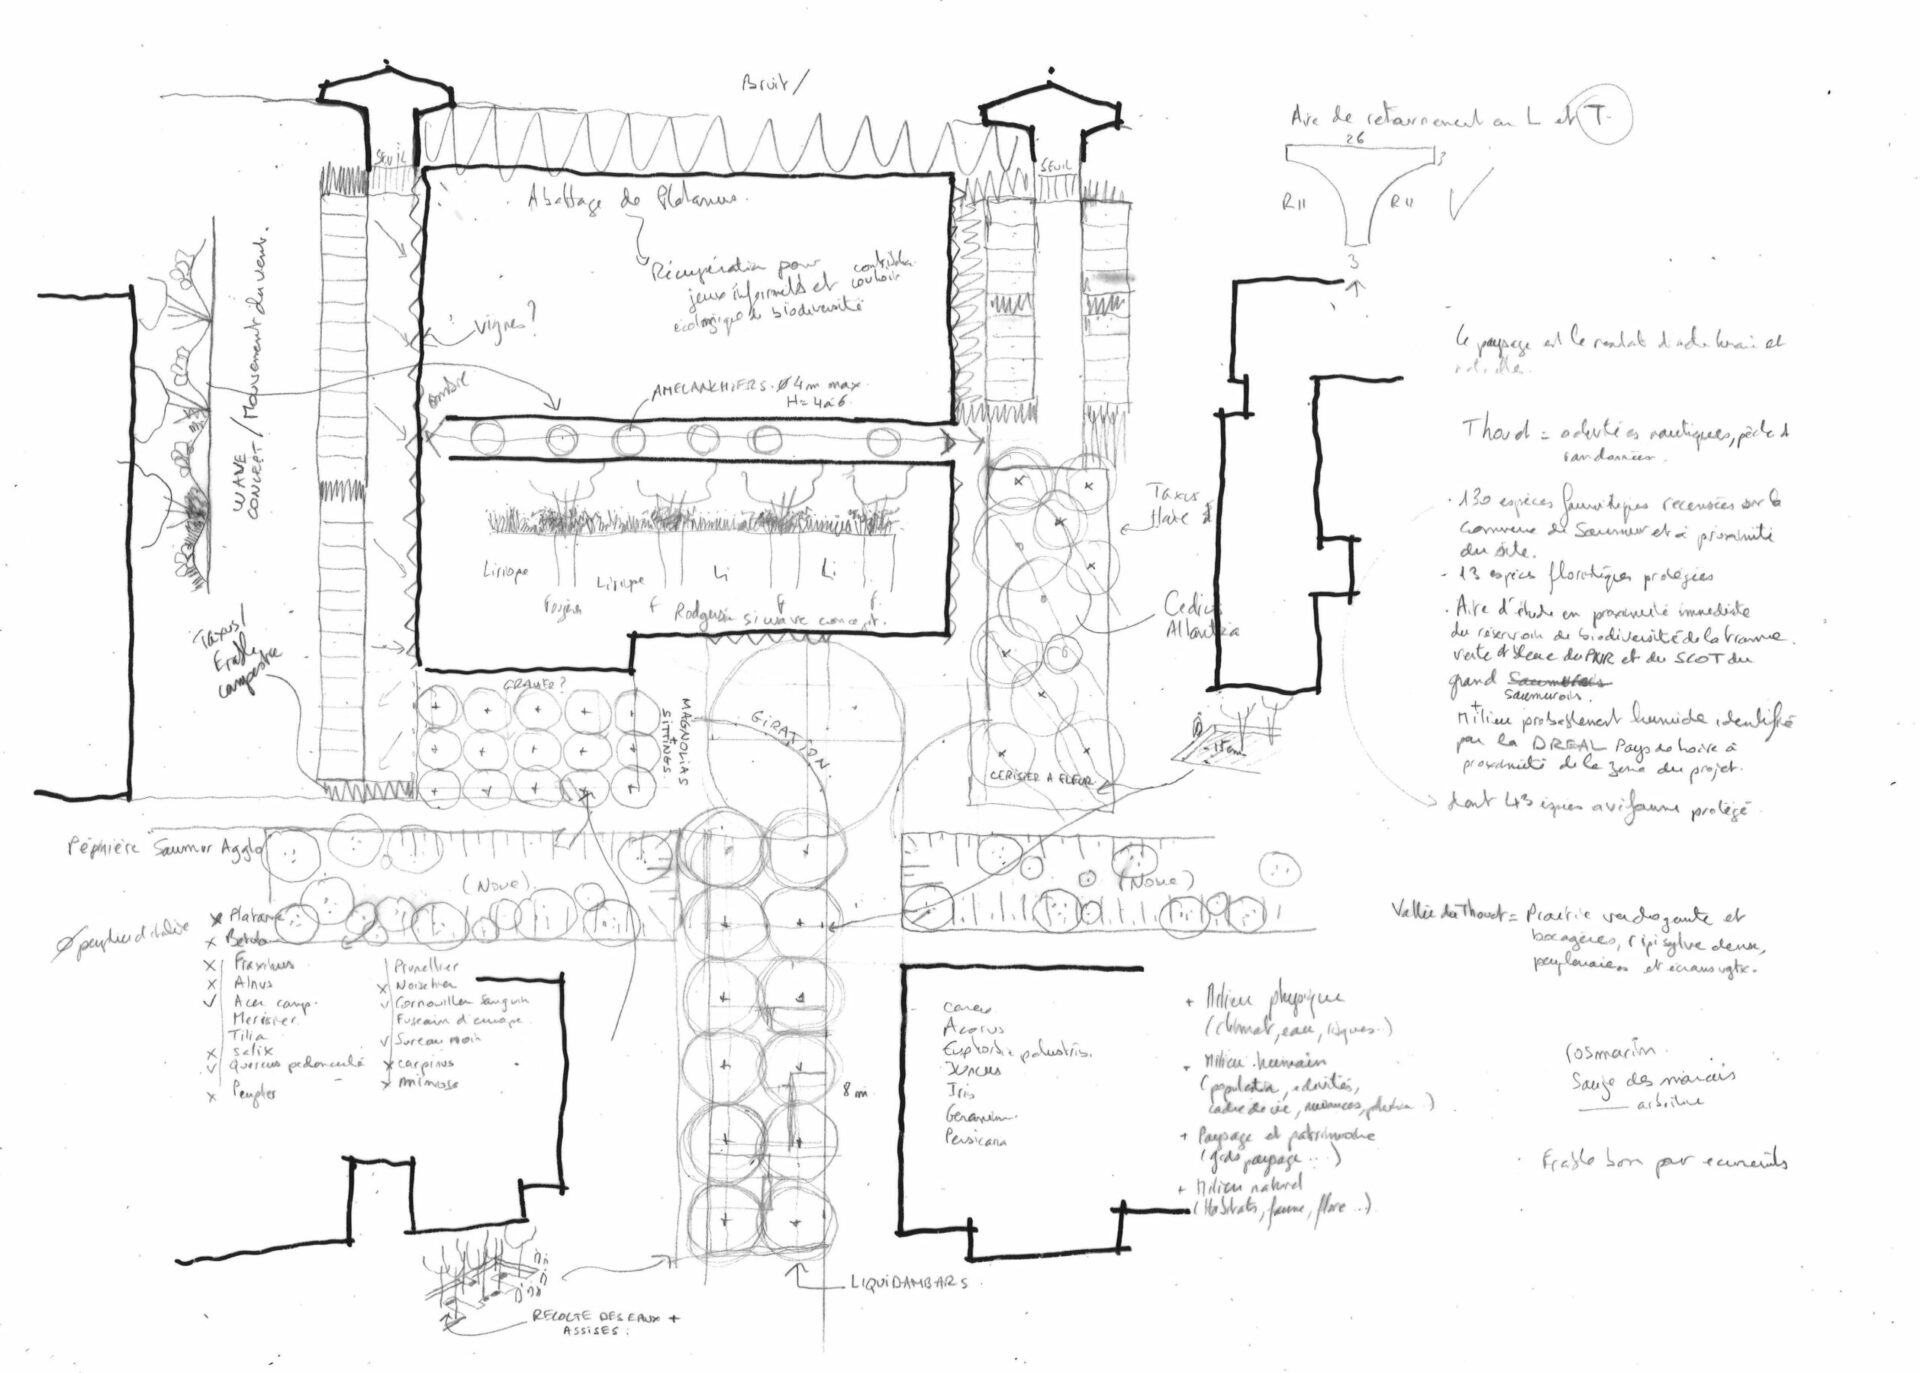 Bruit/
Aire de retournement en L et T.
26
3
R11
R11
3
SEUIL
SEUIL
Abattage de Platanus.
Récupération pour
jeux informels et
écologique de biodiversité
vignes?
ombre
AMELANCHIERS. Ø 4m max.
H = 4 à 6
WAVE
CONCEPT / Mouvement du vent.
Liriope
Liriope
Li
Li
Fougères
f
f
f.
Rodgersia si wave concept.
Taxus
Cedrus
Taxus/
Erable
campestre
GRANDE?
MAGNOLIAS
+
SITTINGS
GIRATION
CERISIER A FLEUR
-15cm
Le paysage est le résultat
Thouet = activités nautiques, pêche
randonnées.
- 130 espèces faunistiques recensées sur la
commune de Saumur et à proximité
du site.
- 13 espèces floristiques protégées
- Aire d'étude en proximité immédiate
du réservoir de biodiversité de la trame
verte et bleue du PNR et du SCOT du
grand Saumurois
Saumurois
+
Milieu probablement humide identifié
par la DREAL Pays de Loire à
proximité de la zone du projet.
dont 43 avifaune protégé
Pépinière Saumur Agglo
(Noue)
(Noue)
Ø peuplier d'Italie
x Platane
x Betula
x Fraxinus
x Alnus
v Acer camp.
Merisier
Tilia
x Salix
v Quercus pedonculé
x Peuplier
Prunellier
x Noisetier
v Cornouiller sanguin
Fusain d'europe
v Sureau noir
x Carpinus
x mimosa
8 m
Carex
Acorus
Euphorbia palustris
Juncus
Iris
Geranium
Persicaria
Vallée du Thouet = Prairie verdoyante et
bocagères, ripisylve dense,
peupleraies et écrans vgtx.
+ Milieu physique
(climat, eau, risques..)
+ Milieu humain
(population, activités,
cadre de vie, nuisances,
+ Paysage et patrimoine
(gds paysage ...)
+ Milieu naturel
(Habitats, faune, flore ..)
romarin
Sauge des marais
Erable bon pour écureuils
LIQUIDAMBARS
RECOLTE DES EAUX +
ASSISES.